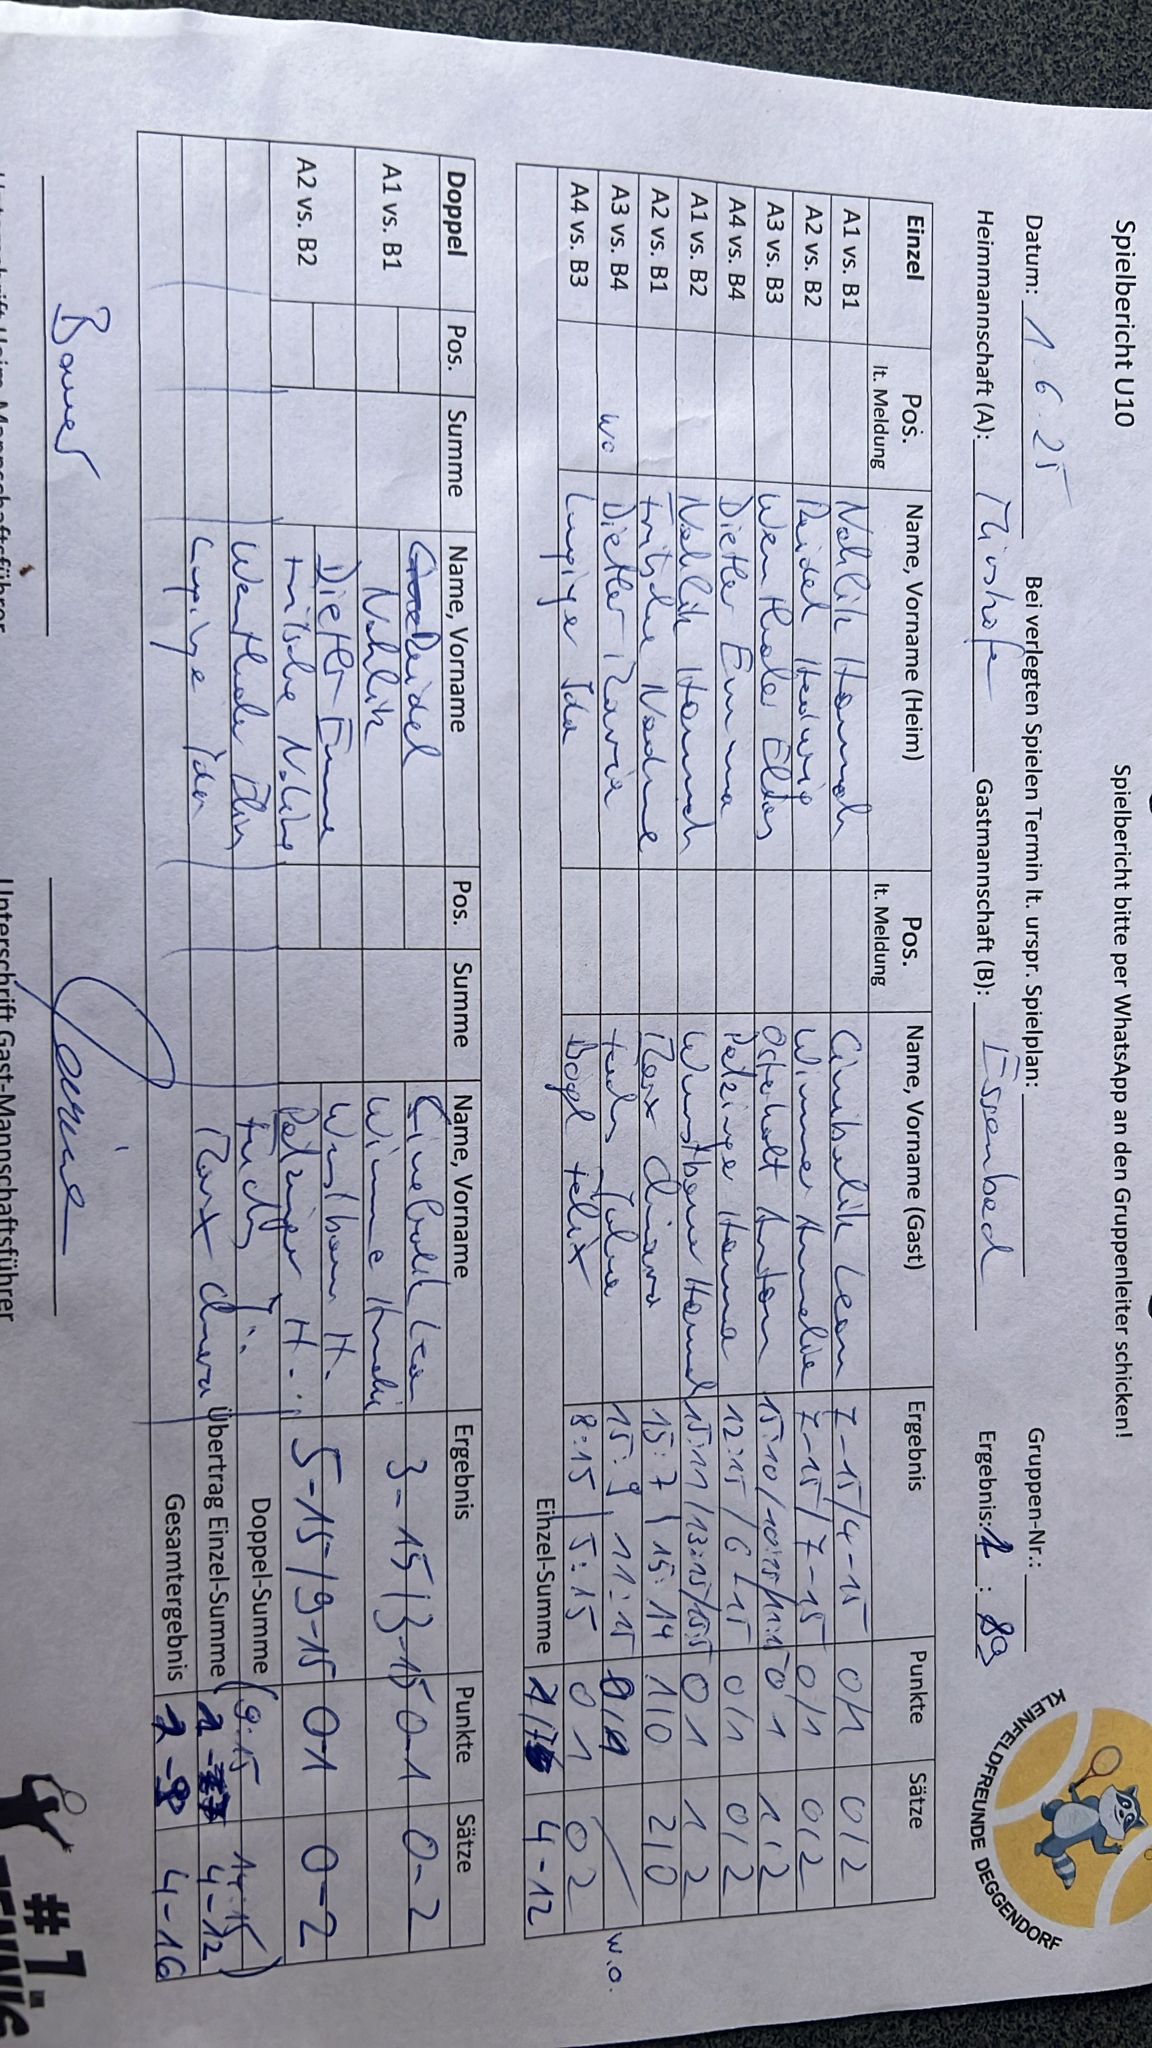 Spielbericht U10 Spielbericht bitte per WhatsApp an den Gruppenleiter schicken!
Datum: 1.6.25 Bei verlegten Spielen Termin lt. urspr. Spielplan: Gruppen-Nr.:
Heimmannschaft (A): Gastmannschaft (B): Essenbach Ergebnis: 1 :
KLEINFELDFREUNDE DEGGENDORF
Einzel Pos. lt. Meldung Name, Vorname (Heim) Pos. lt. Meldung Name, Vorname (Gast) Ergebnis Punkte Sätze
A1 vs. B1 Nohlik Hannah Leon 7-15/4-15 0/1 0/2
A2 vs. B2 Reidel Hedwig Wimmer Annelie 7-15/7-15 0/1 0/2
A3 vs. B3 Werthaler Elias Osterholt Anton 15:10/10:15/11:15 0 1 1/2
A4 vs. B4 Dietler Emma Petzinger Hanna 12:15/6-15 0/1 0/2
A1 vs. B2 Nohlik Hannah Wurstbauer Hannah 15:11/13:15/ 0 1 1 2
A2 vs. B1 Fritsche Nadine Marx Chiara 15:7 | 15:14 1/0 2/0
A3 vs. B4 wo Dietler Maria Fuchs Julia 15:9 11:15 w.o.
A4 vs. B3 Lupinger Ida Bogl Felix 8:15 | 5:15 0 1 0 2
Einzel-Summe 4-12
Doppel Pos. Summe Name, Vorname Pos. Summe Name, Vorname Ergebnis Punkte Sätze
A1 vs. B1 Reidel 3-15/3-15 0-1 0-2
Nohlik Wimmer
A2 vs. B2 Dietler Emma Wurstbauer H. 5-15/9-15 0-1 0-2
Fritsche Nadine Petzinger H.
Werthaler Elias Fuchs J. Doppel-Summe (9:15 14:15)
Lupinger Ida Marx Chiara Übertrag Einzel-Summe 4-12
Gesamtergebnis 4-16
Bauer
Unterschrift Heim-Mannschaftsführer Unterschrift Gast-Mannschaftsführer
#1